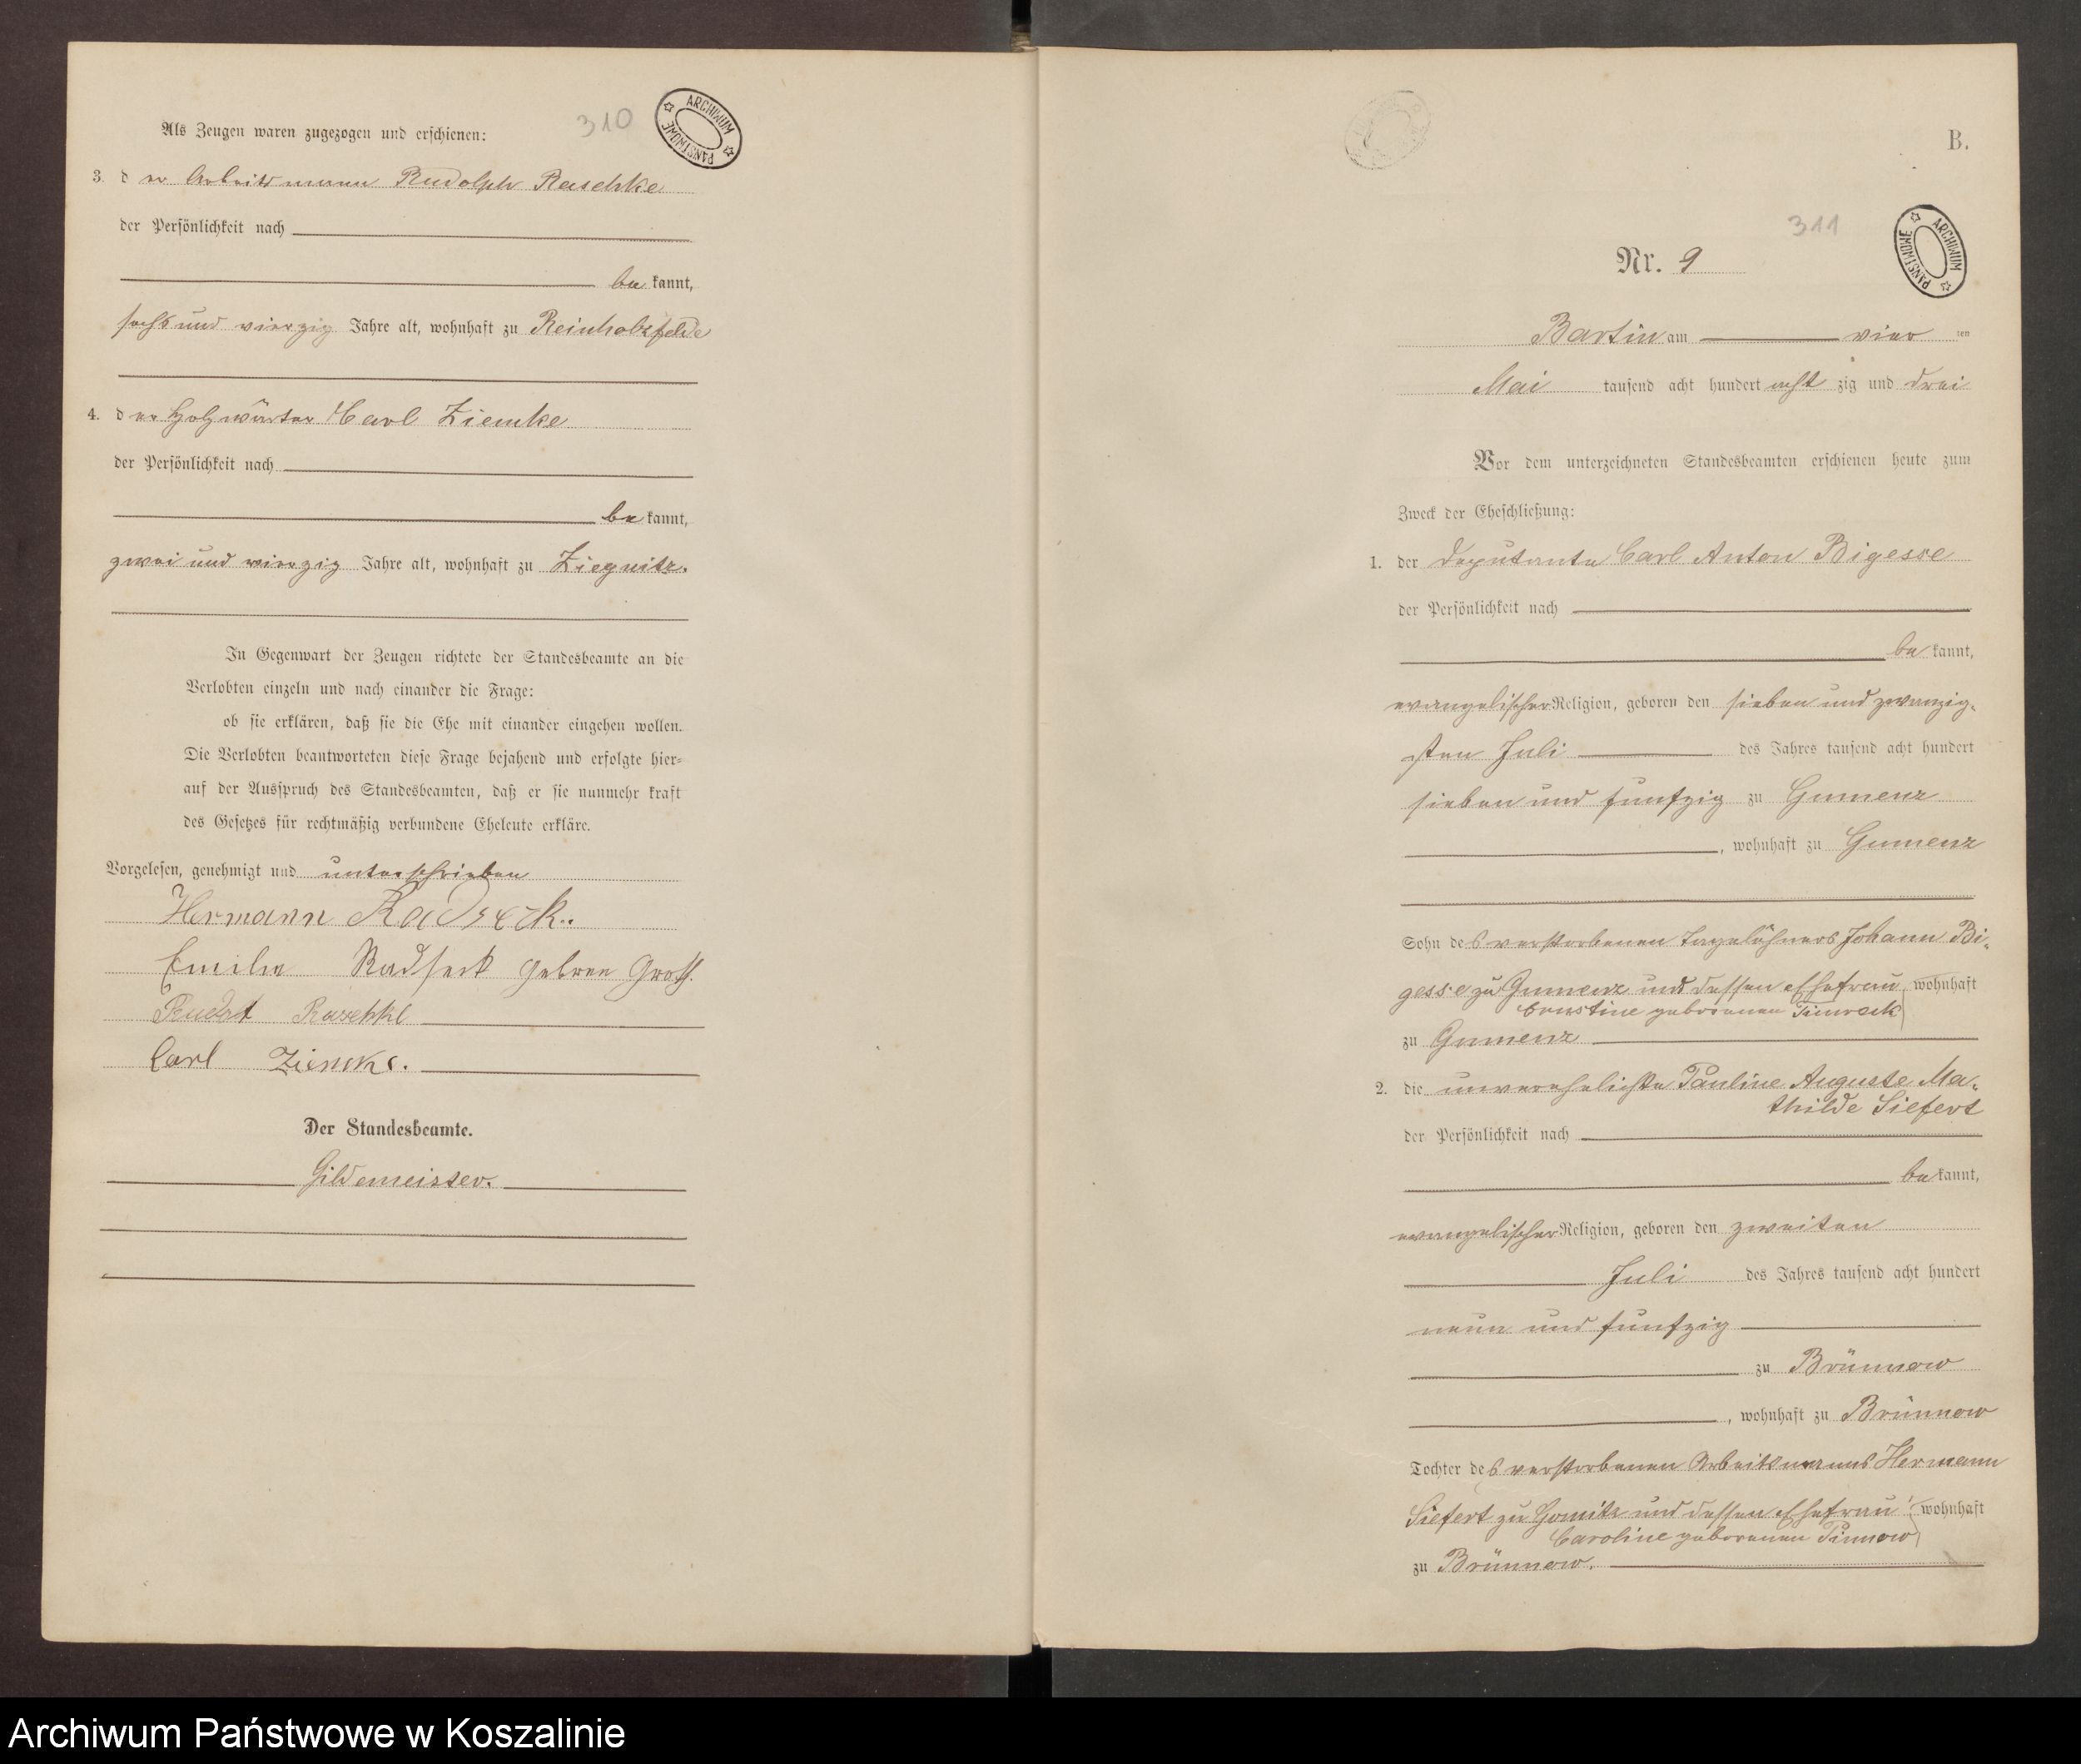 310
ARCHIWUM PAŃSTWOWE
Als Zeugen waren zugezogen und erschienen:
3. der Arbeitsmann Rudolph Raschke
der Persönlichkeit nach
bekannt,
sechs und vierzig Jahre alt, wohnhaft zu Reinholdsfelde
4. der Holzwärter Carl Ziemke
der Persönlichkeit nach
bekannt,
zwei und vierzig Jahre alt, wohnhaft zu Ziegnitz.
In Gegenwart der Zeugen richtete der Standesbeamte an die
Verlobten einzeln und nach einander die Frage:
ob sie erklären, daß sie die Ehe mit einander eingehen wollen.
Die Verlobten beantworteten diese Frage bejahend und erfolgte hier-
auf der Ausspruch des Standesbeamten, daß er sie nunmehr kraft
des Gesetzes für rechtmäßig verbundene Eheleute erkläre.
Vorgelesen, genehmigt und unterschrieben
Hermann Radseck.
Emilie Radseck geboren Groß.
Rudolf Raschke
Carl Ziemke.
Der Standesbeamte.
Gildemeister.
B.
311
ARCHIWUM PAŃSTWOWE
Nr. 9
Bartin am vier ten
Mai tausend acht hundert acht zig und drei
Vor dem unterzeichneten Standesbeamten erschienen heute zum
Zweck der Eheschließung:
1. der Deputante Carl Anton Bigesse
der Persönlichkeit nach
bekannt,
evangelischer Religion, geboren den sieben und zwanzig-
sten Juli des Jahres tausend acht hundert
sieben und funfzig zu Gumenz
, wohnhaft zu Gumenz
Sohn des verstorbenen Tagelöhners Johann Bi-
gesse zu Gumenz und dessen Ehefrau wohnhaft
Ernstine geborenen
zu Gumenz
2. die unverehelichte Pauline Auguste Ma-
thilde Siefert
der Persönlichkeit nach
bekannt,
evangelischer Religion, geboren den zweiten
Juli des Jahres tausend acht hundert
neun und funfzig
zu Brünnow
, wohnhaft zu Brünnow
Tochter des verstorbenen Arbeitsmanns Hermann
Siefert zu Gomitz und dessen Ehefrau wohnhaft
Caroline geborenen Pinnow
zu Brünnow.
Archiwum Państwowe w Koszalinie